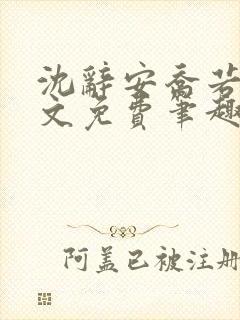 沈辞安乔若
文免费笔趣
阿盖已被注册